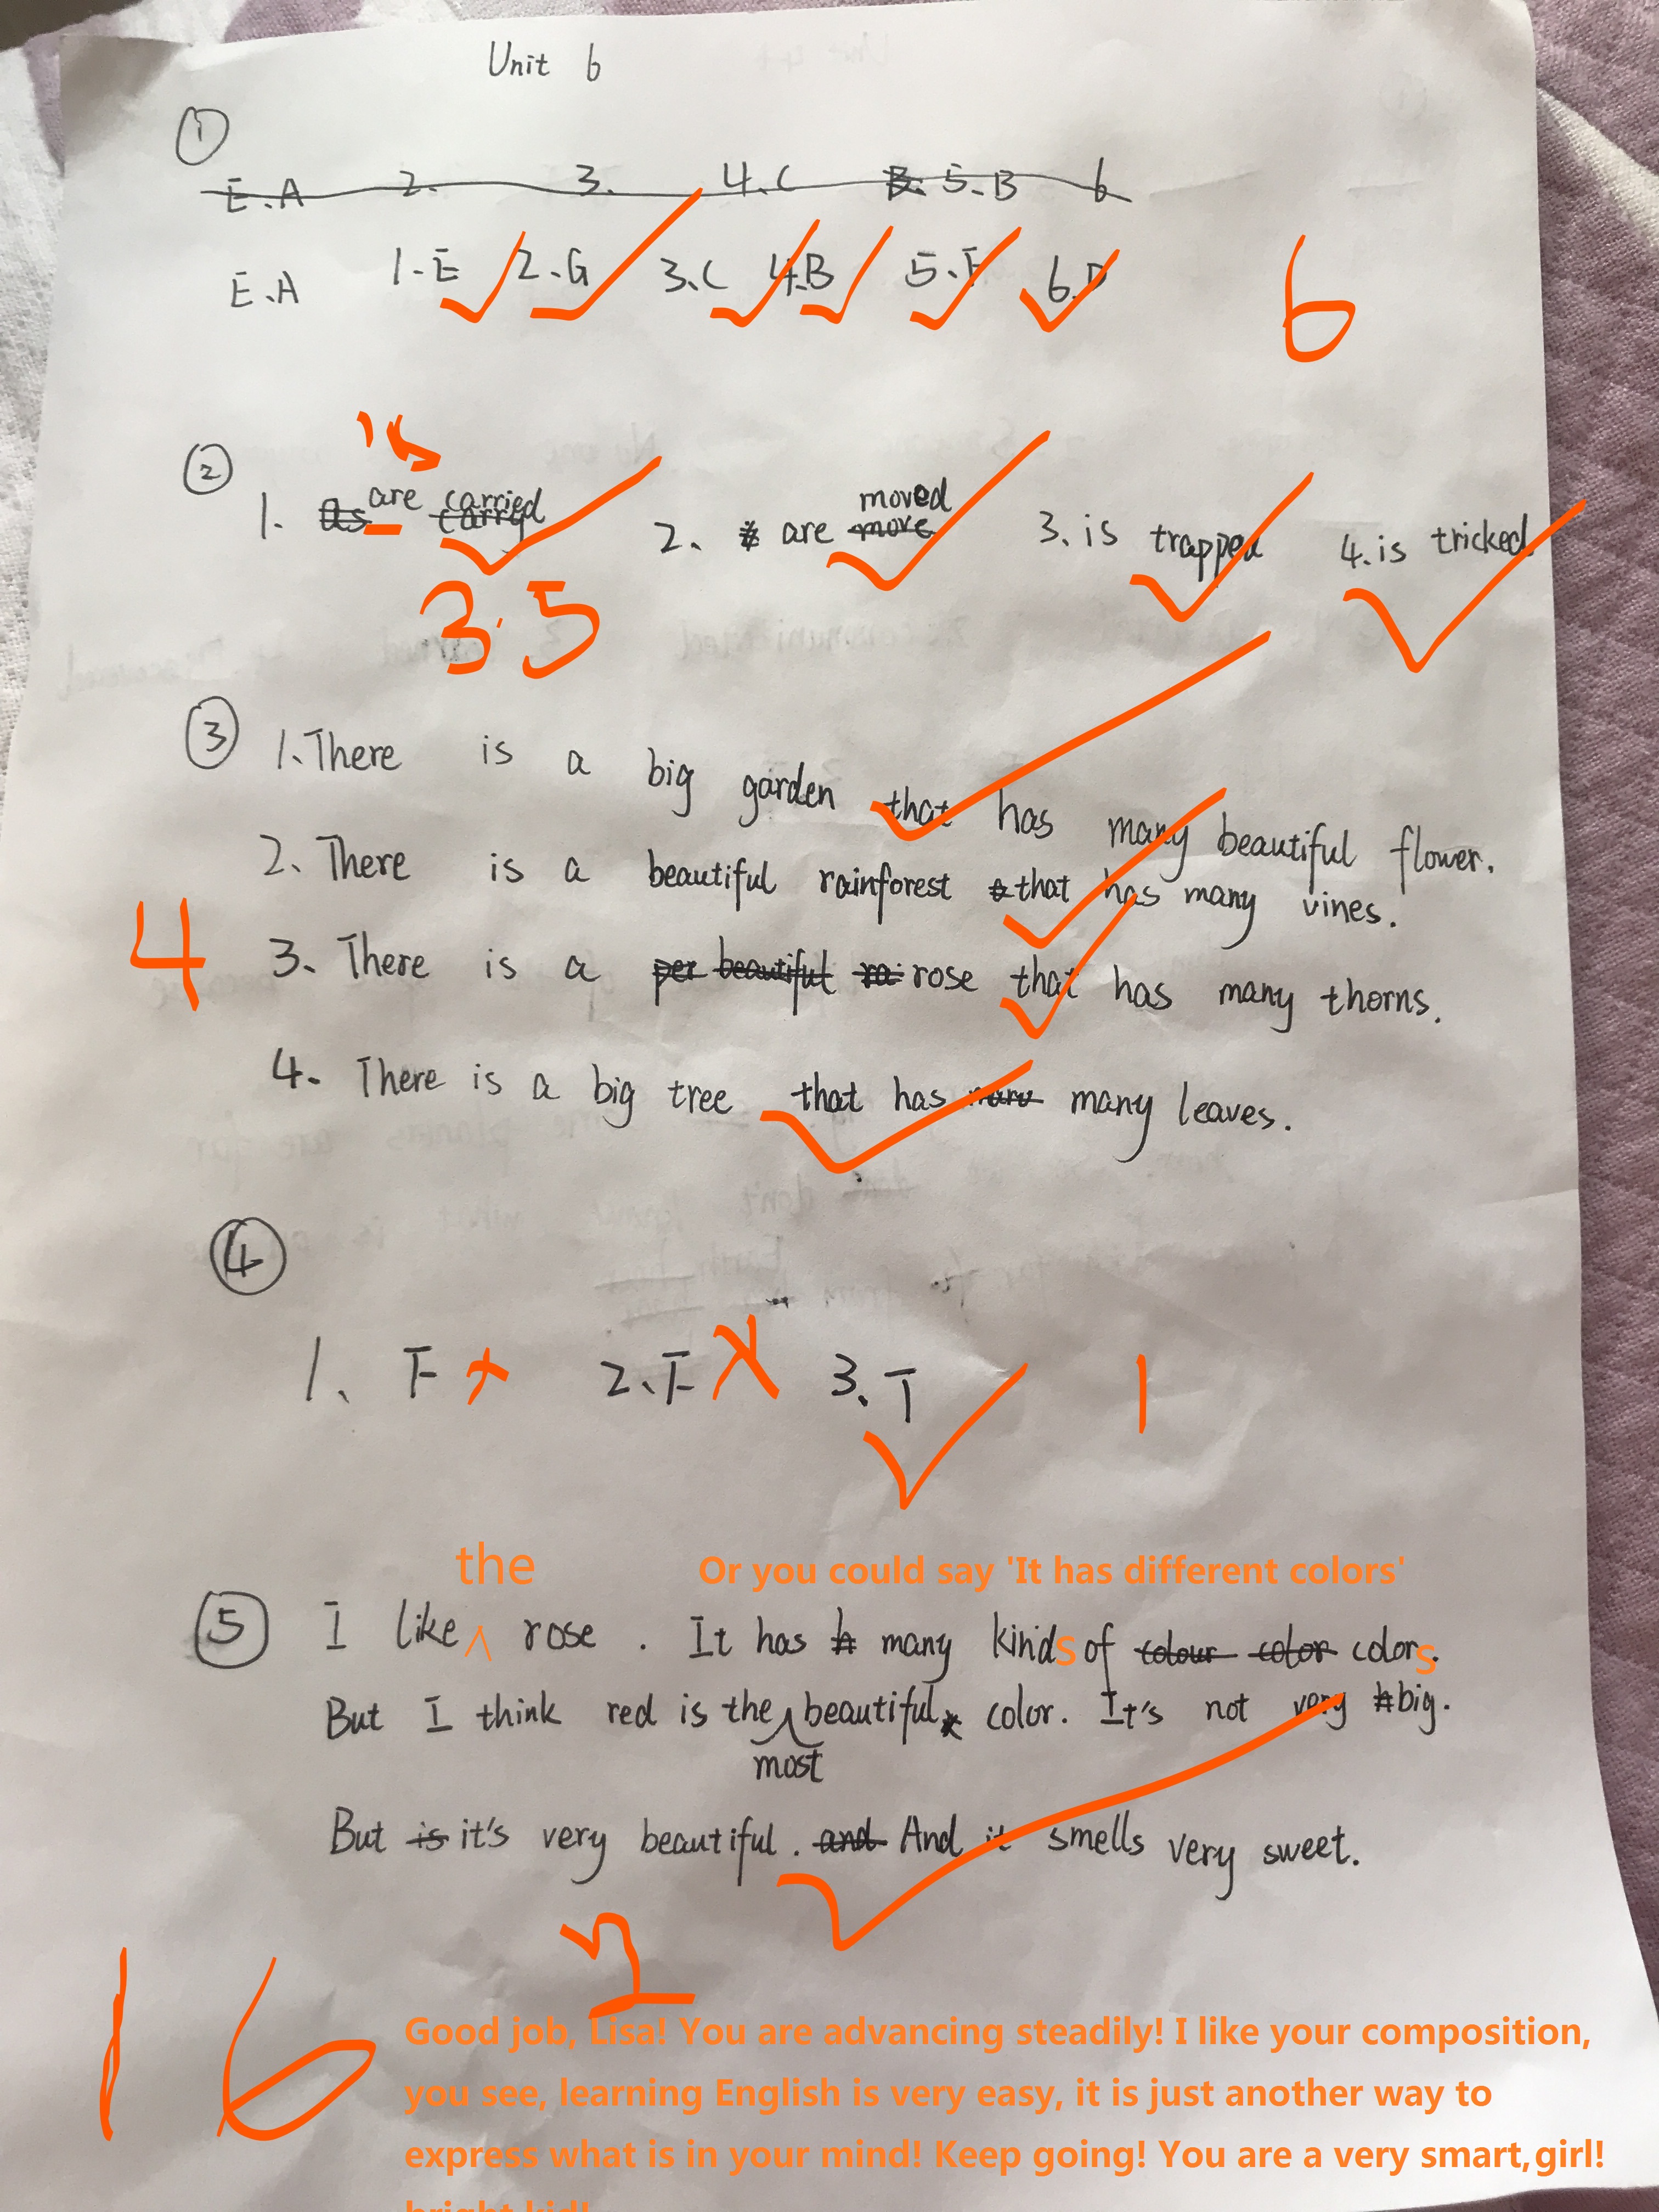 Unit 6
①
E.A 2. 3. 4.C 5.B 6
E.A 1.E 2.G 3.C 4.B 5.F 6.D
6
is
②
1. as are carried carry 2. are moved move 3. is trapped 4. is tricked
3.5
③ 1. There is a big garden that has many beautiful flower.
2. There is a beautiful rainforest that has many vines.
4
3. There is a per beautiful ra rose that has many thorns.
4. There is a big tree that has many leaves.
④
1. F 2. F 3. T 1
the Or you could say 'It has different colors'
⑤ I like ^ rose. It has many kinds of colour color colors.
But I think red is the most beautiful color. It's not very big.
But is it's very beautiful. and And it smells very sweet.
2
16
Good job, Lisa! You are advancing steadily! I like your composition,
you see, learning English is very easy, it is just another way to
express what is in your mind! Keep going! You are a very smart,girl!
bright kid!